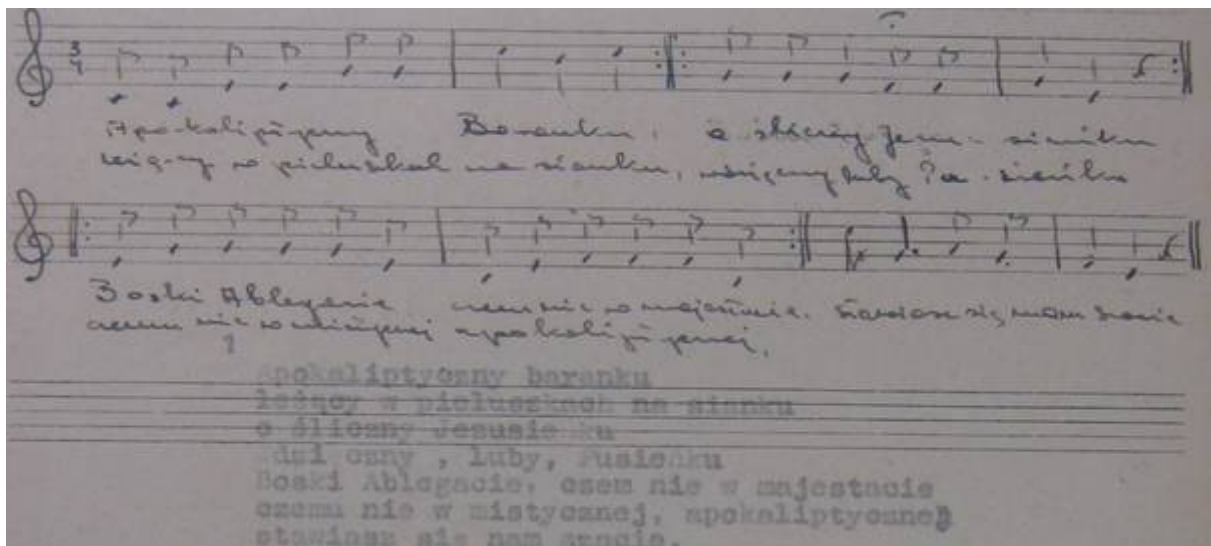 3
4
Apokaliptyczny Baranku, o śliczny Jezu-sieńku
leżący w pieluszkach na sianku, wdzięczny luby Pu-sieńku
Boski Ablegacie czemu nie w majestacie. stawiasz się nam
czemu nie w mistycznej apokaliptycznej,
1
Apokaliptyczny baranku
leżący w pieluszkach na sianku
o śliczny Jesusieńku
luby, Pusieńku
Boski Ablegacie, czem nie w majestacie
czemu nie w mistycznej, apokaliptycznej
stawiasz się nam